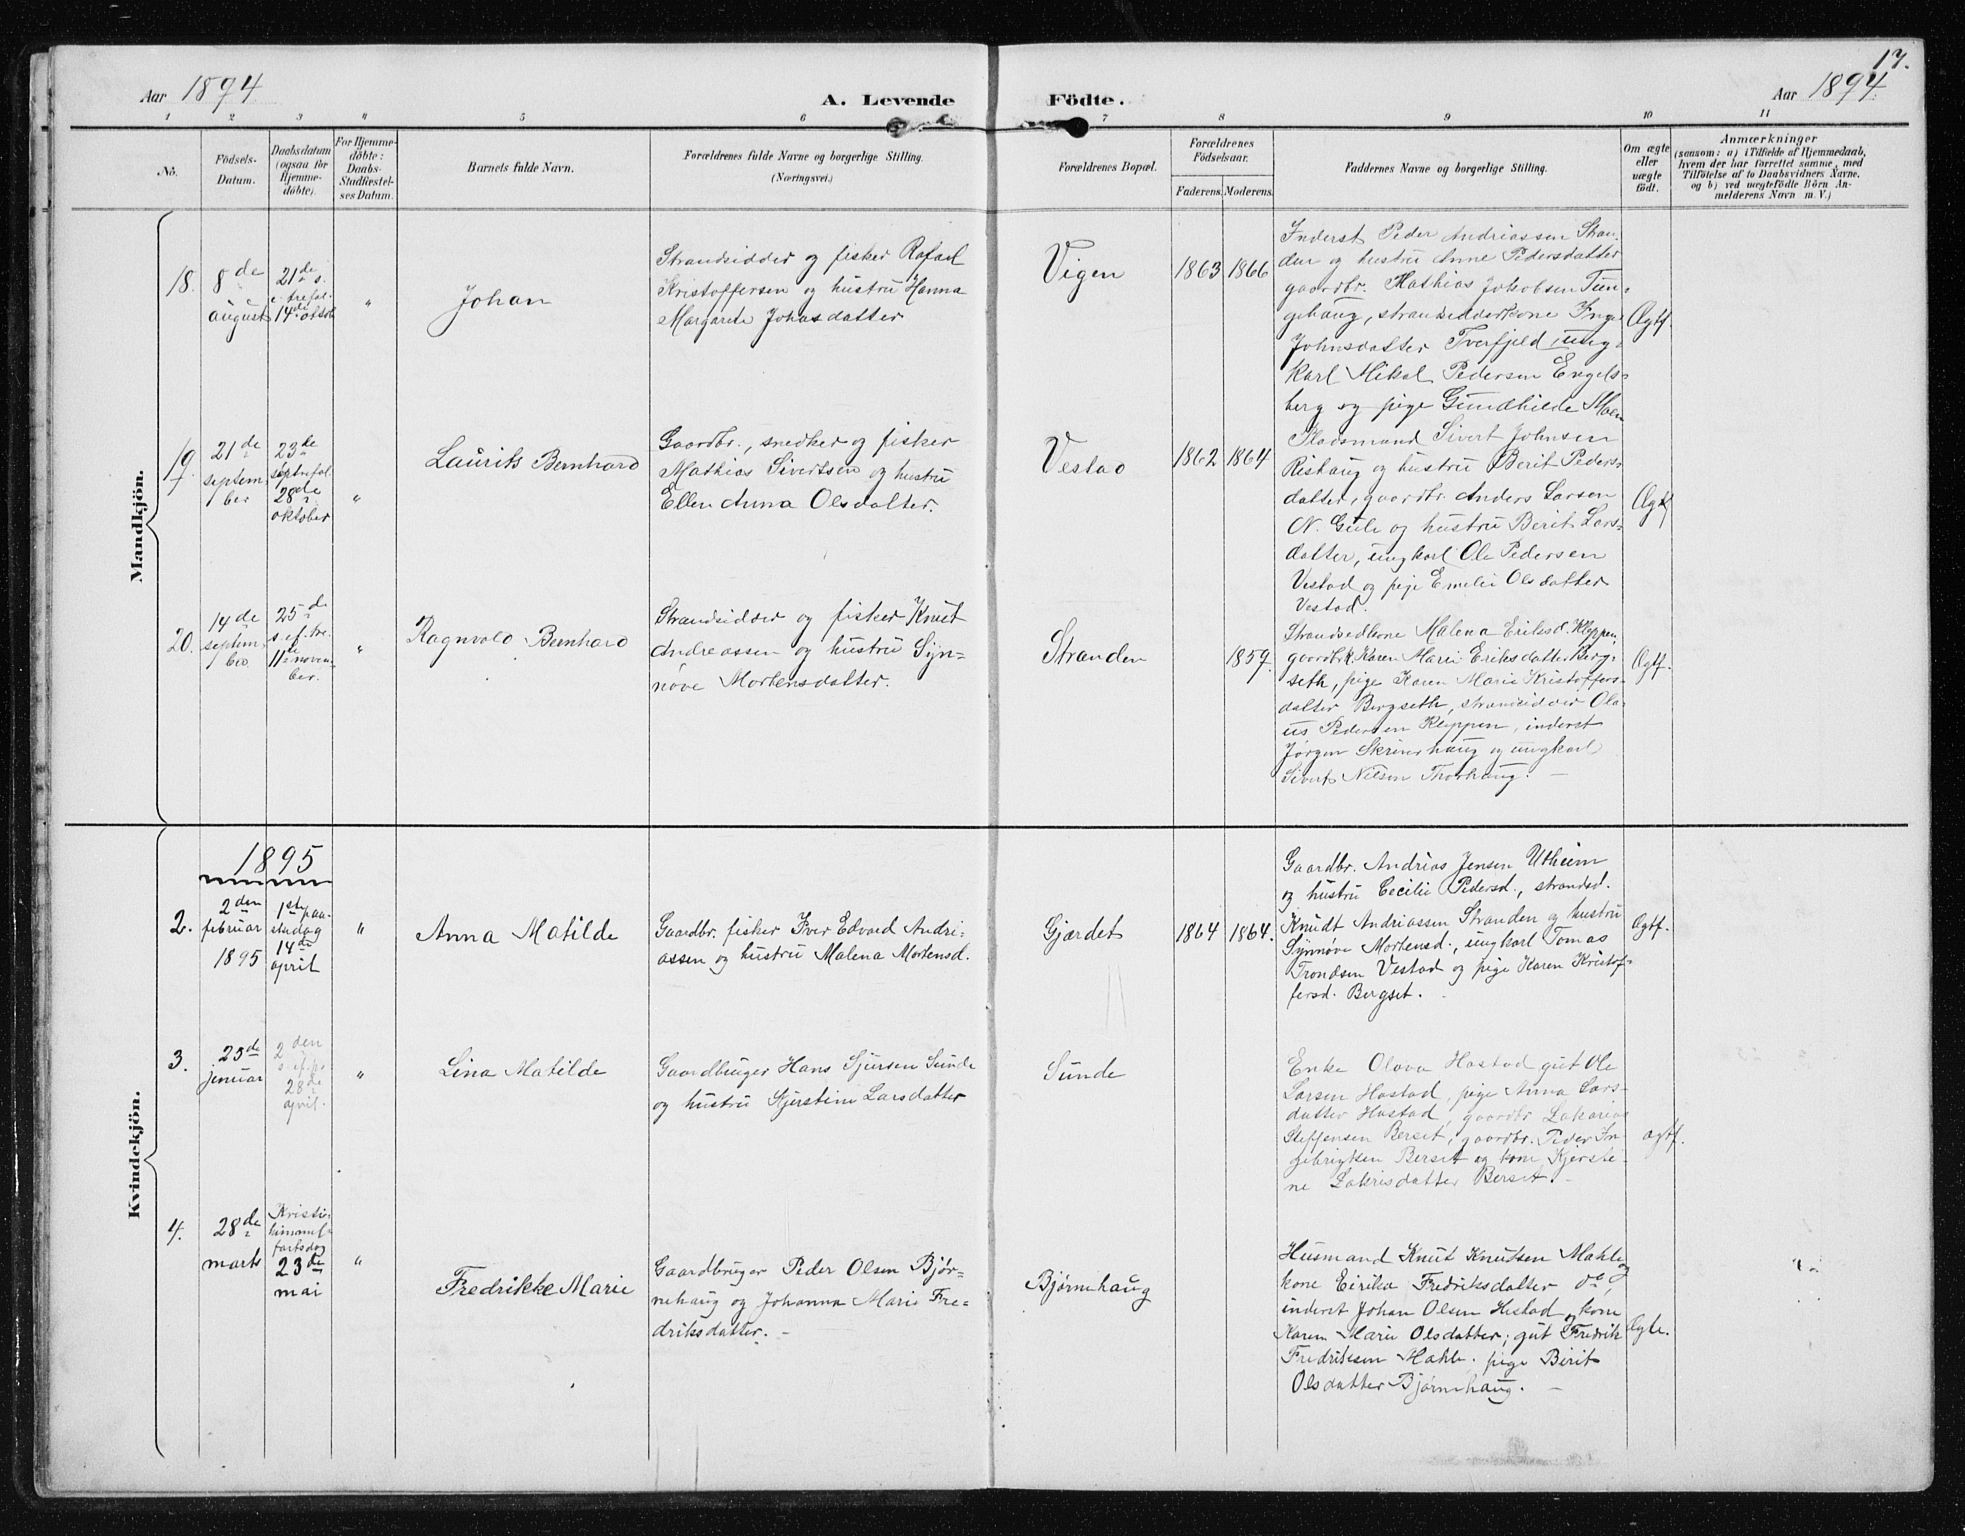 17.
Aar 1894
A. Levende
Födte.
Aar 1894
1 2 3 4 5 6 7 8 9 10 11
No.
Födsels-
Datum.
Daabsdatum
(ogsaa for
Hjemme-
döbte).
For Hjemme-
döbte:
Daabs-
Stadfæstel-
ses Datum.
Barnets fulde Navn.
Forældrenes fulde Navne og borgerlige Stilling.
(Næringsvei.)
Forældrenes Bopæl.
Forældrenes
Födselsaar.
Faderens. Moderens.
Faddernes Navne og borgerlige Stilling.
Om ægte
eller
uægte
födt.
Anmærkninger
(saasom: a) i Tilfælde af Hjemmedaab,
hvem der har forrettet samme, med
Tilföielse af to Daabsvidners Navne,
og b) ved uægtefödte Börn An-
melderens Navn m. V.)
Mandkjön.
18.
8de
august
21de s.
e. trefol.
14de oktob
"
Johan
Strandsidder og fisker Rafael
Kristoffersen og hustru Hanna
Margarete Johasdatter
Vigen
1863 1866
Inderst Peder Andreassen Stran-
den og hustru Anne Pedersdatter
gaardbr. Mathias Jakobsen Tun-
gehaug, strandsidderkone Inge
Johnsdatter Tverfjeld, ung-
karl Mikal Pedersen Engels-
berg og pige Gundhilde Moen
Ægtf.
19.
21de
septem-
ber
23de
septrefol.
28de
oktober
"
Laurits Bernhard
Gaardbr., snedker og fisker
Mathias Sivertsen og hustru
Ellen Anna Olsdatter.
Vestad
1862 1864
Pladsmand Sivert Johnsen
Rishaug og hustru Berit Peders-
datter, gaardbr. Anders Larsen
N. Gule og hustru Berit Lars-
datter, ungkarl Ole Pedersen
Vestad og pige Emelie Olsdatter
Vestad.
Ægtf
20.
14de
septem-
ber.
25de
s. ef. tre.
11te novem-
ber.
"
Ragnvald Bernhard
Strandsidder og fisker Knut
Andreassen og hustru Syn-
növe Mortensdatter.
Stranden
1859.
Strandsedkone Malena Eriksd. Kleppen,
gaardbrk. Karen Marie Eriksdatter Berg-
seth, pige Karen Marie Kristoffers-
datter Bergseth, strandsidder Ola-
us Pedersen Kleppen, inderst
Jörgen Skrinshaug og ungkarl
Sivert Nilsen Thorhaug. —
Ægtf.
Kvindekjön.
1895
2.
2den
februar
1895
1ste paa-
skedag
14de
april
"
Anna Matilde
Gaardbr. fisker Iver Edvard Andre-
assen og hustru Malena Mortensd.
Gjærdet
1864 1864.
Gaardbr. Andreas Jensen Utheim
og hustru Cecilie Pedersd., strandsd.
Knudt Andreassen Stranden og hustru
Synnöve Mortensd., ungkarl Tomas
Trondsen Vestad og pige Karen Kristof-
fersd. Bergset.
Ægtf.
3.
23de
januar
2den
s. ef. ps
28de
april.
"
Lina Matilde
Gaardbruger Hans Sjursen Sunde
og hustru Kjerstine Larsdatter
Sunde
Enke Olava Hastad gut Ole
Larsen Hastad, pige Anna Lars-
datter Hastad, gaardbr Zakarias
Steffensen Berset, gaardbr. Peder In-
gebrigtsen Berset og kone Kjersti-
ne Zakrisdatter Berset. -
ægtf.
4.
28de
marts
Kristi-
himmel-
fartsdag
23de
mai
"
Fredrikke Marie
Gaardbruger Peder Olsen Bjør-
nehaug og Johanna Marie Fre-
driksdatter. -
Bjørnehaug
Husmand Knut Knutsen Mahle og
kone Eirika Fredriksdatter do,
inderst Johan Olsen Hestad og kone
Karen Marie Olsdatter; gut Fredrik
Fredriksen Mahle. pige Berit
Olsdatter Bjørnehaug. —
Ægte.